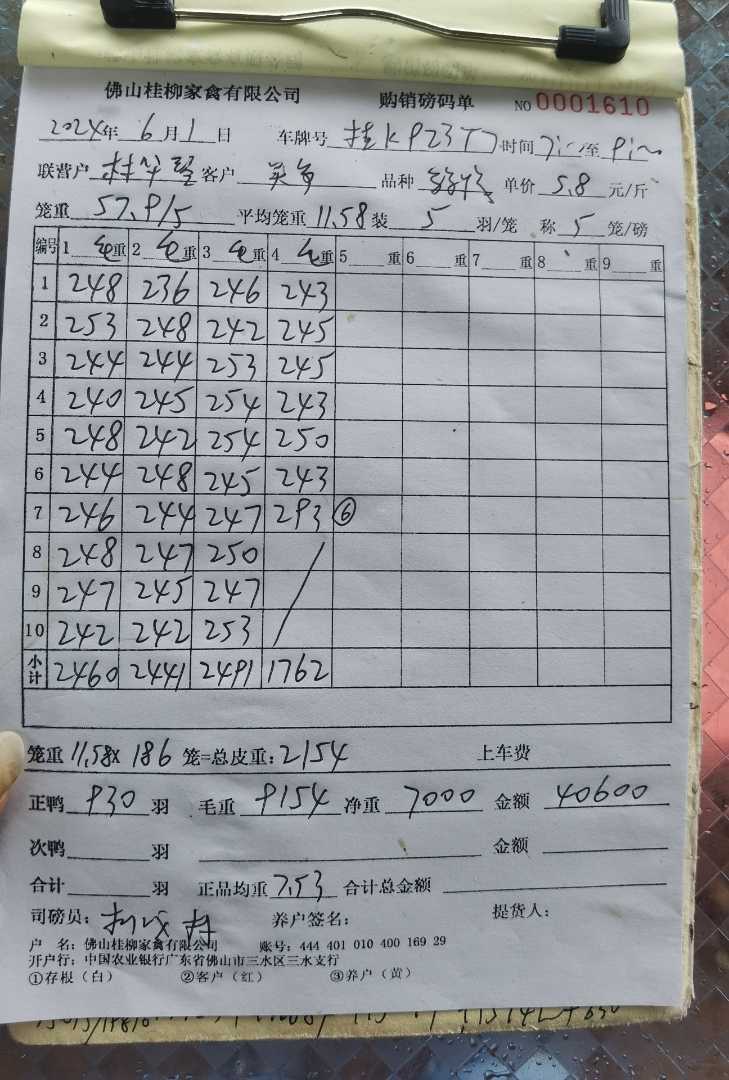 佛山桂柳家禽有限公司 购销磅码单 NO 0001610
2024年 6月1日 车牌号 桂K P23 时间 至
联营户 客户 品种 单价 5.8 元/斤
笼重 57.9/5 平均笼重 11.58 装 5 羽/笼 称 5 笼/磅
编号 1 毛重 2 毛重 3 毛重 4 毛重 5 重 6 重 7 重 8 重 9 重
1 248 236 246 243
2 253 248 242 245
3 244 244 253 245
4 240 245 254 243
5 248 242 254 250
6 244 248 245 243
7 246 244 247 293 ⑥
8 248 247 250
9 247 245 247
10 242 242 253
小计 2460 2441 2491 1762
笼重 11.58× 186 笼=总皮重: 2154 上车费
正鸭 930 羽 毛重 9154 净重 7000 金额 40600
次鸭 羽 金额
合计 羽 正品均重 7.53 合计总金额
司磅员: 养户签名: 提货人:
户 名: 佛山桂柳家禽有限公司 账号: 444 401 010 400 169 29
开户行: 中国农业银行广东省佛山市三水区三水支行
①存根(白) ②客户(红) ③养户(黄)